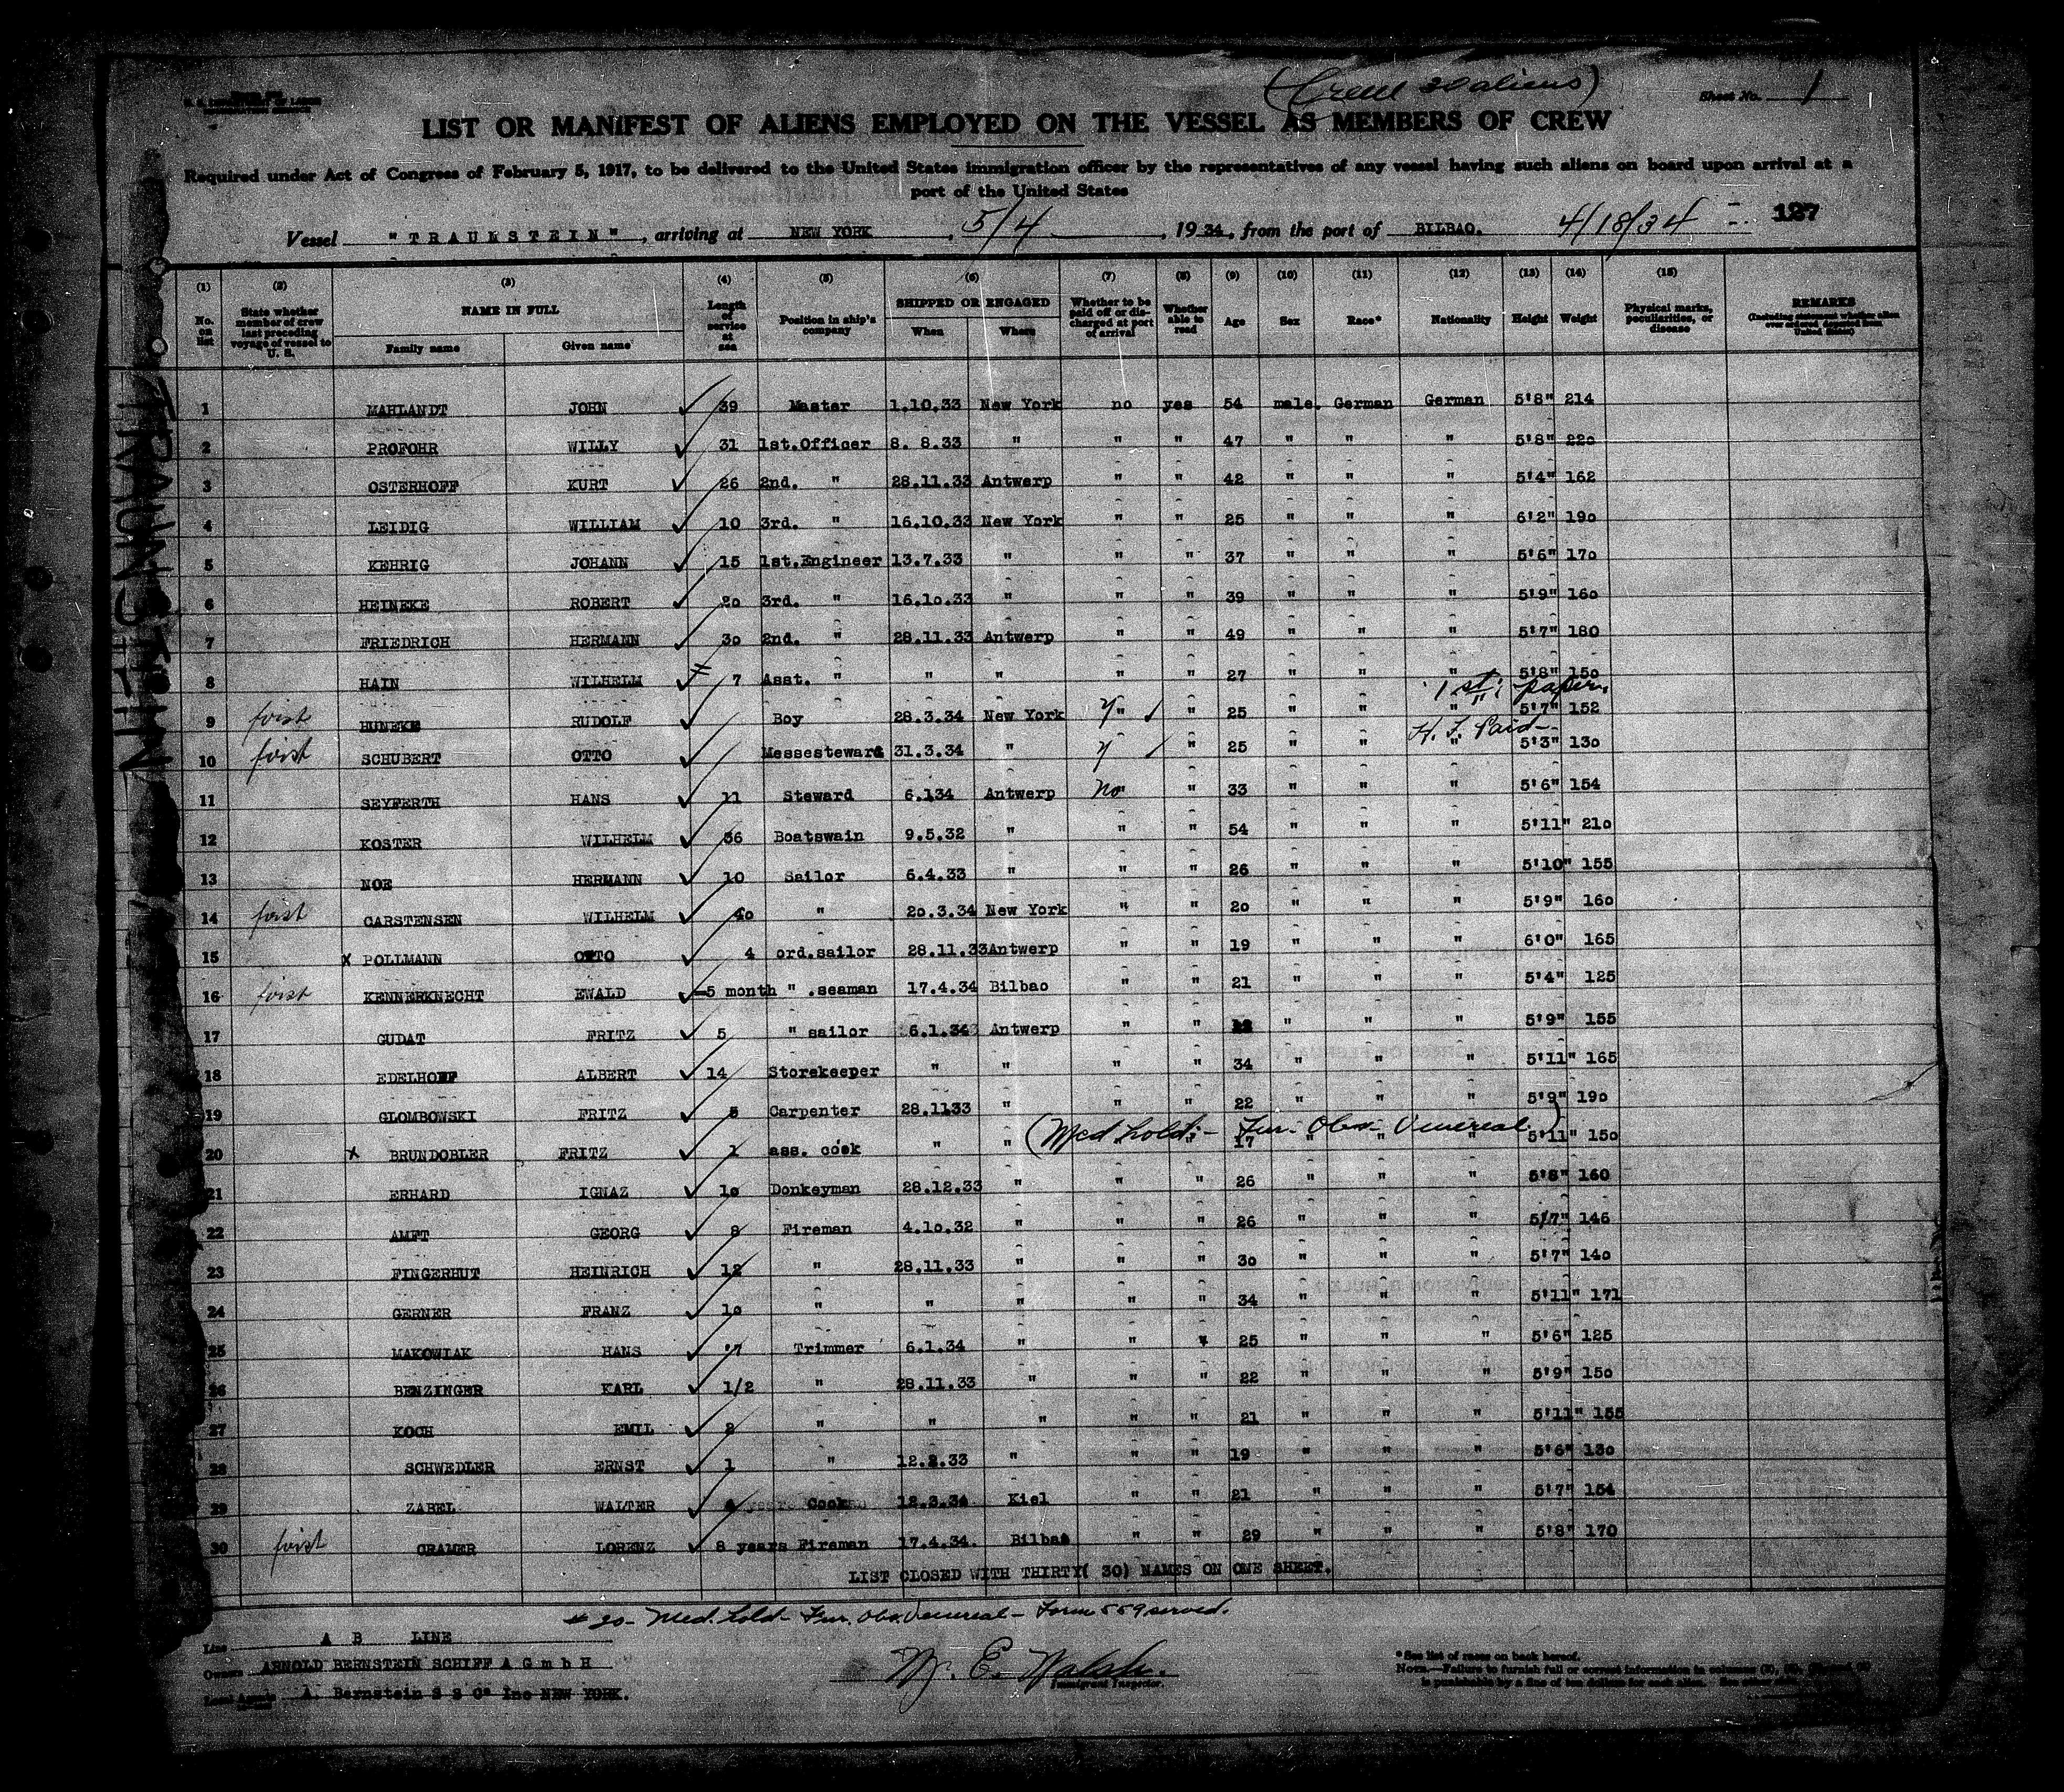 (Crew 30 aliens)
Sheet No. 1
LIST OR MANIFEST OF ALIENS EMPLOYED ON THE VESSEL AS MEMBERS OF CREW
Required under Act of Congress of February 5, 1917, to be delivered to the United States immigration officer by the representatives of any vessel having such aliens on board upon arrival at a
port of the United States
Vessel "TRAUNSTEIN", arriving at NEW YORK, 5/4, 1934, from the port of BILBAO. 4/18/34 127
TRAUNSTEIN
(1) (2) (3) (4) (5) (6) (7) (8) (9) (10) (11) (12) (13) (14) (15)
No. on list | State whether member of crew last preceding voyage of vessel to U. S. | NAME IN FULL Family name Given name | Length of service at sea | Position in ship's company | SHIPPED OR ENGAGED When Where | Whether to be paid off or discharged at port of arrival | Whether able to read | Age | Sex | Race* | Nationality | Height | Weight | Physical marks, peculiarities, or disease | REMARKS (Including statement whether alien ever ordered deported from United States)
1 MAHLANDT JOHN 39 Master 1.10.33 New York no yes 54 male. German German 5'8" 214
2 PROFOHR WILLY 31 1st.Officer 8. 8.33 " " " 47 " " " 5'8" 220
3 OSTERHOFF KURT 26 2nd. " 28.11.33 Antwerp " " 42 " " " 5'4" 162
4 LEIDIG WILLIAM 10 3rd. " 16.10.33 New York " " 25 " " " 6'2" 190
5 KEHRIG JOHANN 15 1st.Engineer 13.7.33 " " " 37 " " " 5'6" 170
6 HEINEKE ROBERT 20 3rd. " 16.10.33 " " " 39 " " " 5'9" 160
7 FRIEDRICH HERMANN 30 2nd. " 28.11.33 Antwerp " " 49 " " " 5'7" 180
8 HAIN WILHELM 7 Asst. " " " " " 27 " " " 5'8" 150
1st paper.
9 first HUNEKE RUDOLF Boy 28.3.34 New York " " 25 " " " 5'7" 152
H. T. Paid
10 first SCHUBERT OTTO Messesteward 31.3.34 " " 25 " " " 5'3" 130
11 SEYFERTH HANS 11 Steward 6.134 Antwerp no " 33 " " " 5'6" 154
12 KOSTER WILHELM 36 Boatswain 9.5.32 " " " 54 " " " 5'11" 210
13 NOE HERMANN 10 Sailor 6.4.33 " " " 26 " " " 5'10" 155
14 first CARSTENSEN WILHELM 40 " 20.3.34 New York " " 20 " " " 5'9" 160
15 x POLLMANN OTTO 4 ord.sailor 28.11.33 Antwerp " " 19 " " " 6'0" 165
16 first KENNERKNECHT EWALD 5 month " .seaman 17.4.34 Bilbao " " 21 " " " 5'4" 125
17 GUDAT FRITZ 5 " sailor 6.1.34 Antwerp " " " " " 5'9" 155
18 EDELHOFF ALBERT 14 Storekeeper " " " " 34 " " " 5'11" 165
19 GLOMBOWSKI FRITZ 5 Carpenter 28.1133 " " " 22 " " " 5'9" 190
(Med hold:- Fur. Obs. Venereal)
20 x BRUNDOBLER FRITZ 1 ass. cook " " " 17 " " " 5'11" 150
21 ERHARD IGNAZ 10 Donkeyman 28.12.33 " " " 26 " " " 5'8" 160
22 AMFT GEORG 8 Fireman 4.10.32 " " " 26 " " " 5'7" 146
23 FINGERHUT HEINRICH 12 " 28.11.33 " " " 30 " " " 5'7" 140
24 GERNER FRANZ 10 " " " " " 34 " " " 5'11" 171
25 MAKOWIAK HANS 7 Trimmer 6.1.34 " " " 25 " " " 5'6" 125
26 BENZINGER KARL 1/2 " 28.11.33 " " " 22 " " " 5'9" 150
27 KOCH EMIL 2 " " " " " 21 " " " 5'11" 155
28 SCHWEDLER ERNST 1 " 12.2.33 " " " 19 " " " 5'6" 130
29 ZABEL WALTER years Cook 12.3.34 Kiel " " 21 " " " 5'7" 154
30 first CRAMER LORENZ 8 years Fireman 17.4.34. Bilbao " " 29 " " " 5'8" 170
LIST CLOSED WITH THIRTY( 30) NAMES ON ONE SHEET.
# 20- Med. hold- Fur. Obs. Venereal- Form 559 served.
Line A B LINE
Owners ARNOLD BERNSTEIN SCHIFF A G m b H
Local Agents A. Bernstein S S Co Inc NEW YORK.
W. E. Walsh.
Immigrant Inspector.
* See list of races on back hereof.
NOTE.—Failure to furnish full or correct information in columns
is punishable by a fine of ten dollars for each alien.